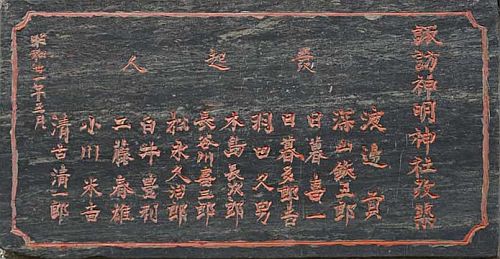 諏訪神明神社改築
発起人
渡邉貢
深山鉄五郎
日暮喜一
日暮多郎吉
羽田久男
木島長次郎
長谷川喜三郎
松永久治郎
白井豊利
工藤春雄
小川米吉
清古清郎